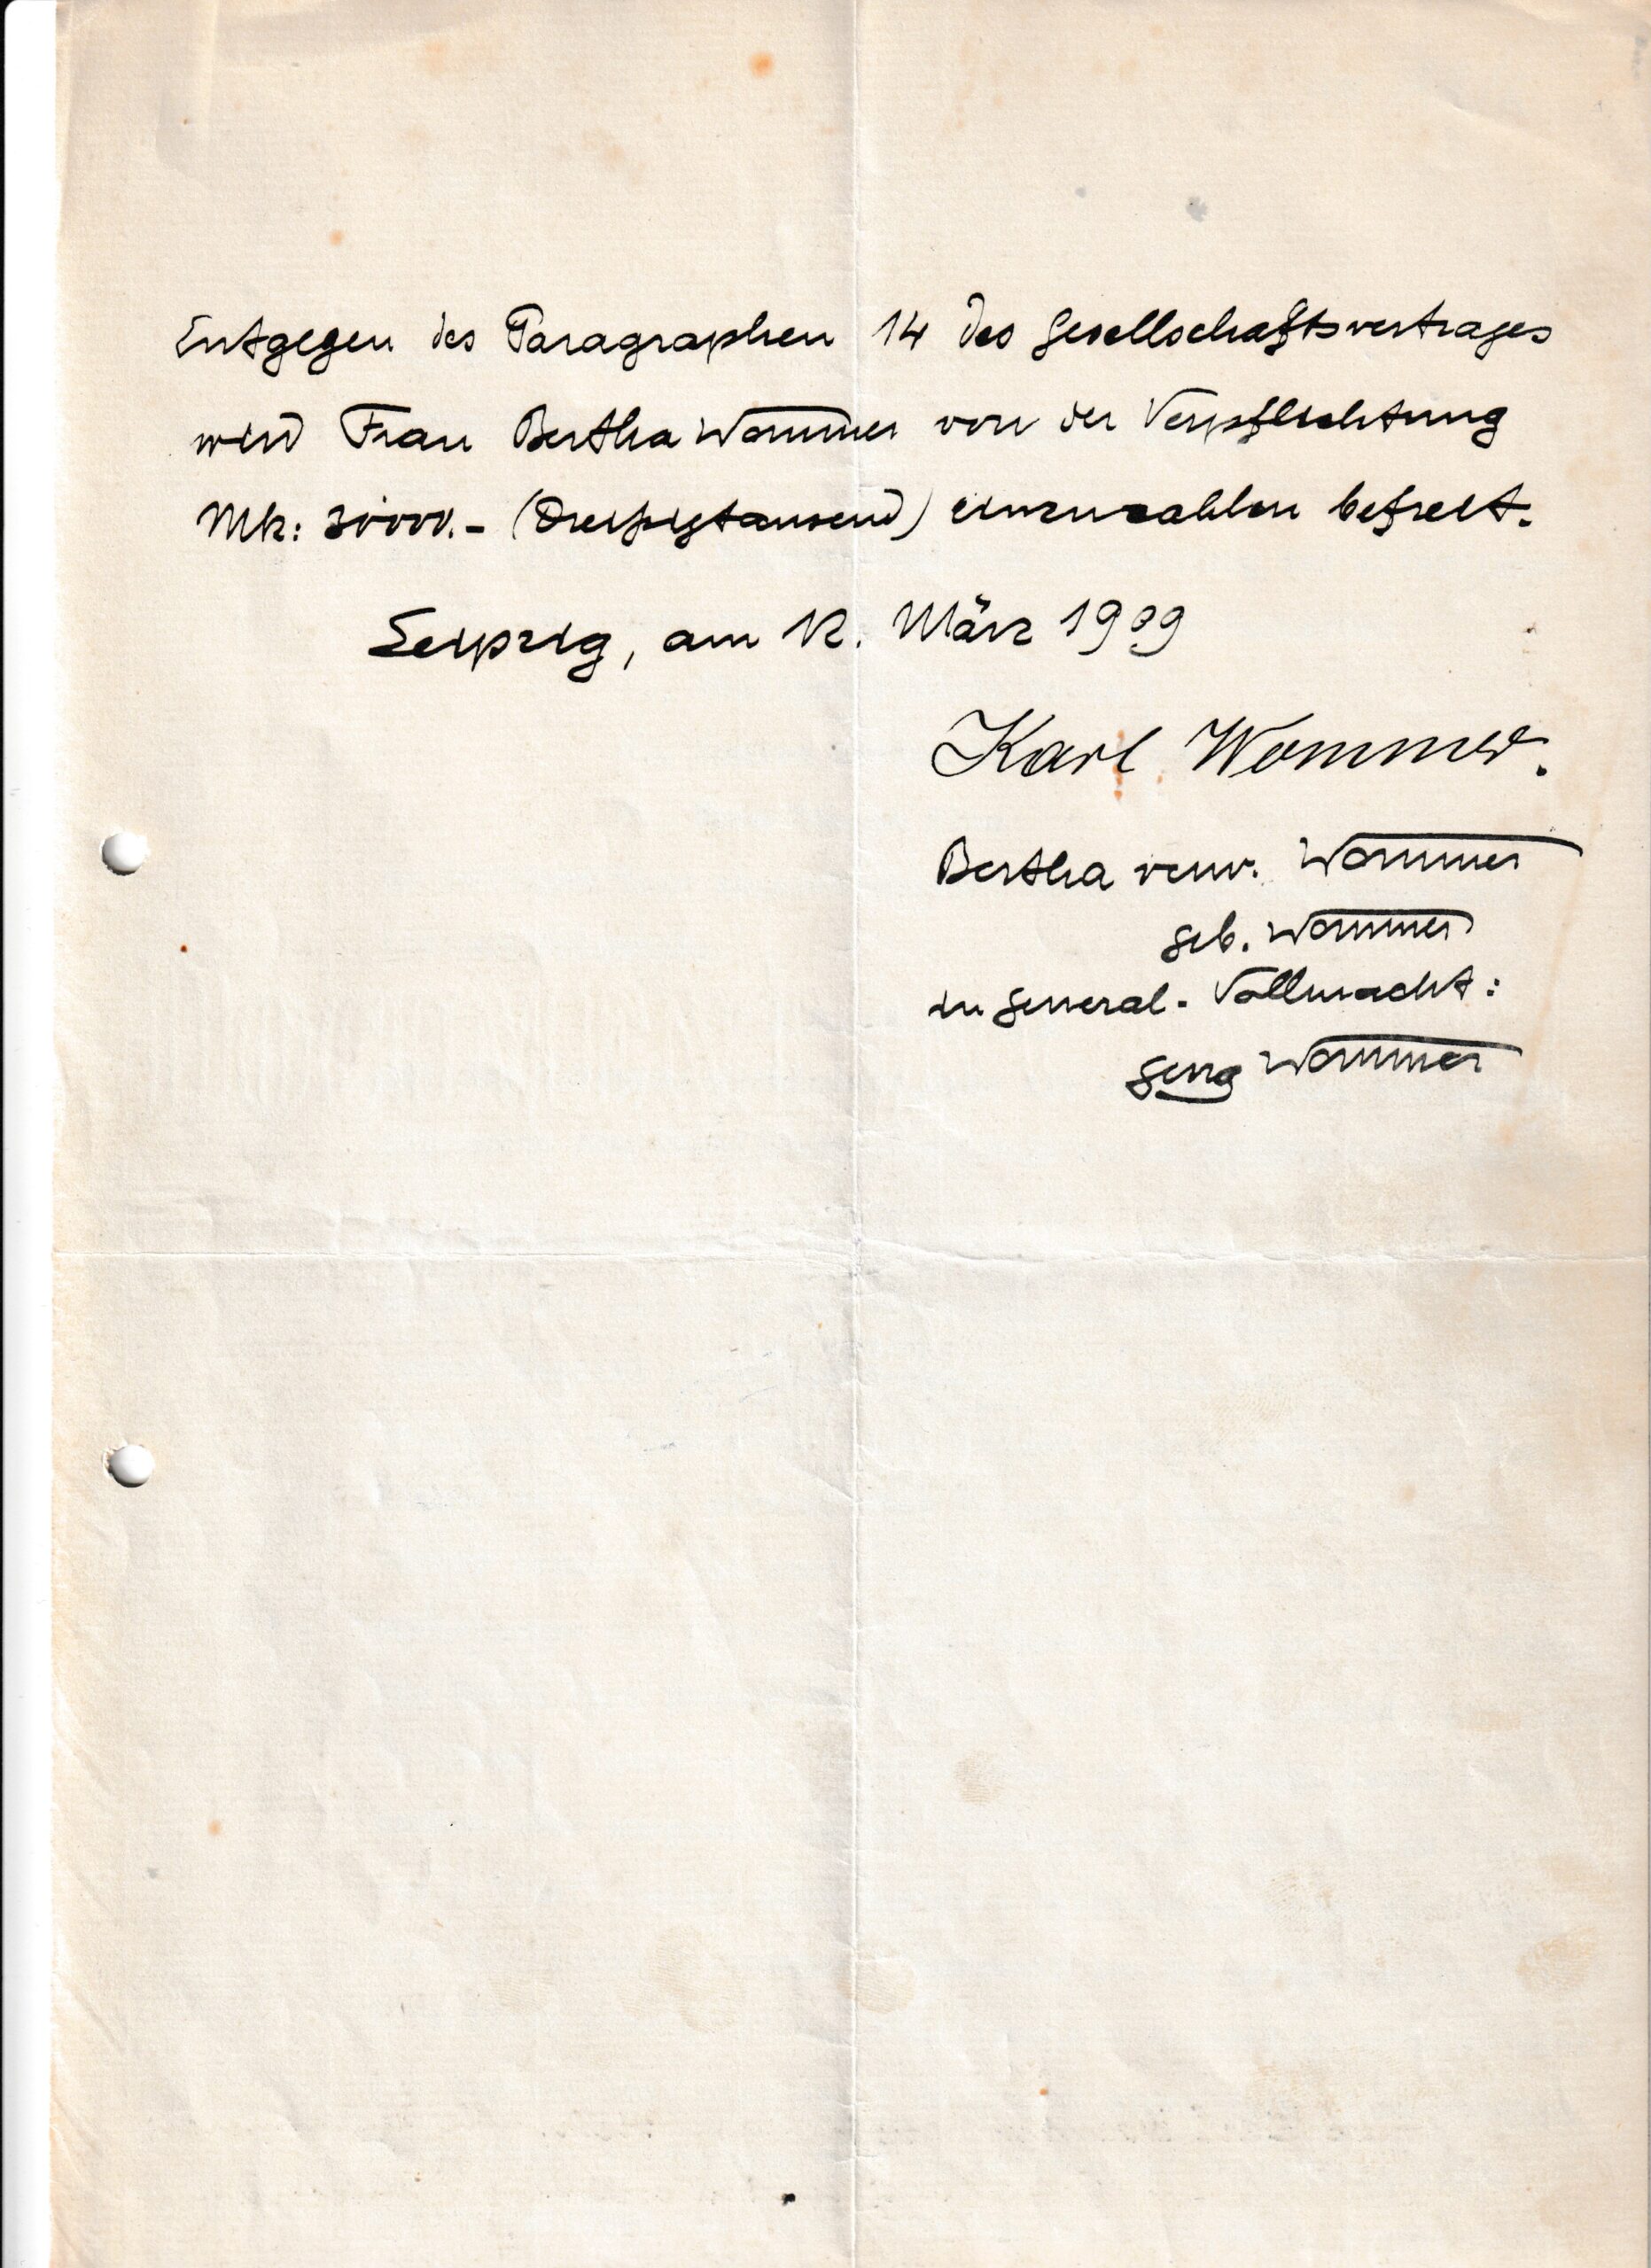 Entgegen des Paragraphen 14 des Gesellschaftsvertrages
wird Frau Bertha Wommer von der Verpflichtung
Mk: 30000.- (Dreißigtausend) einzuzahlen befreit.
Leipzig, am 12. März 1909
Karl Wommer.
Bertha verw. Wommer
geb. Wommer
in General-Vollmacht:
Wommer